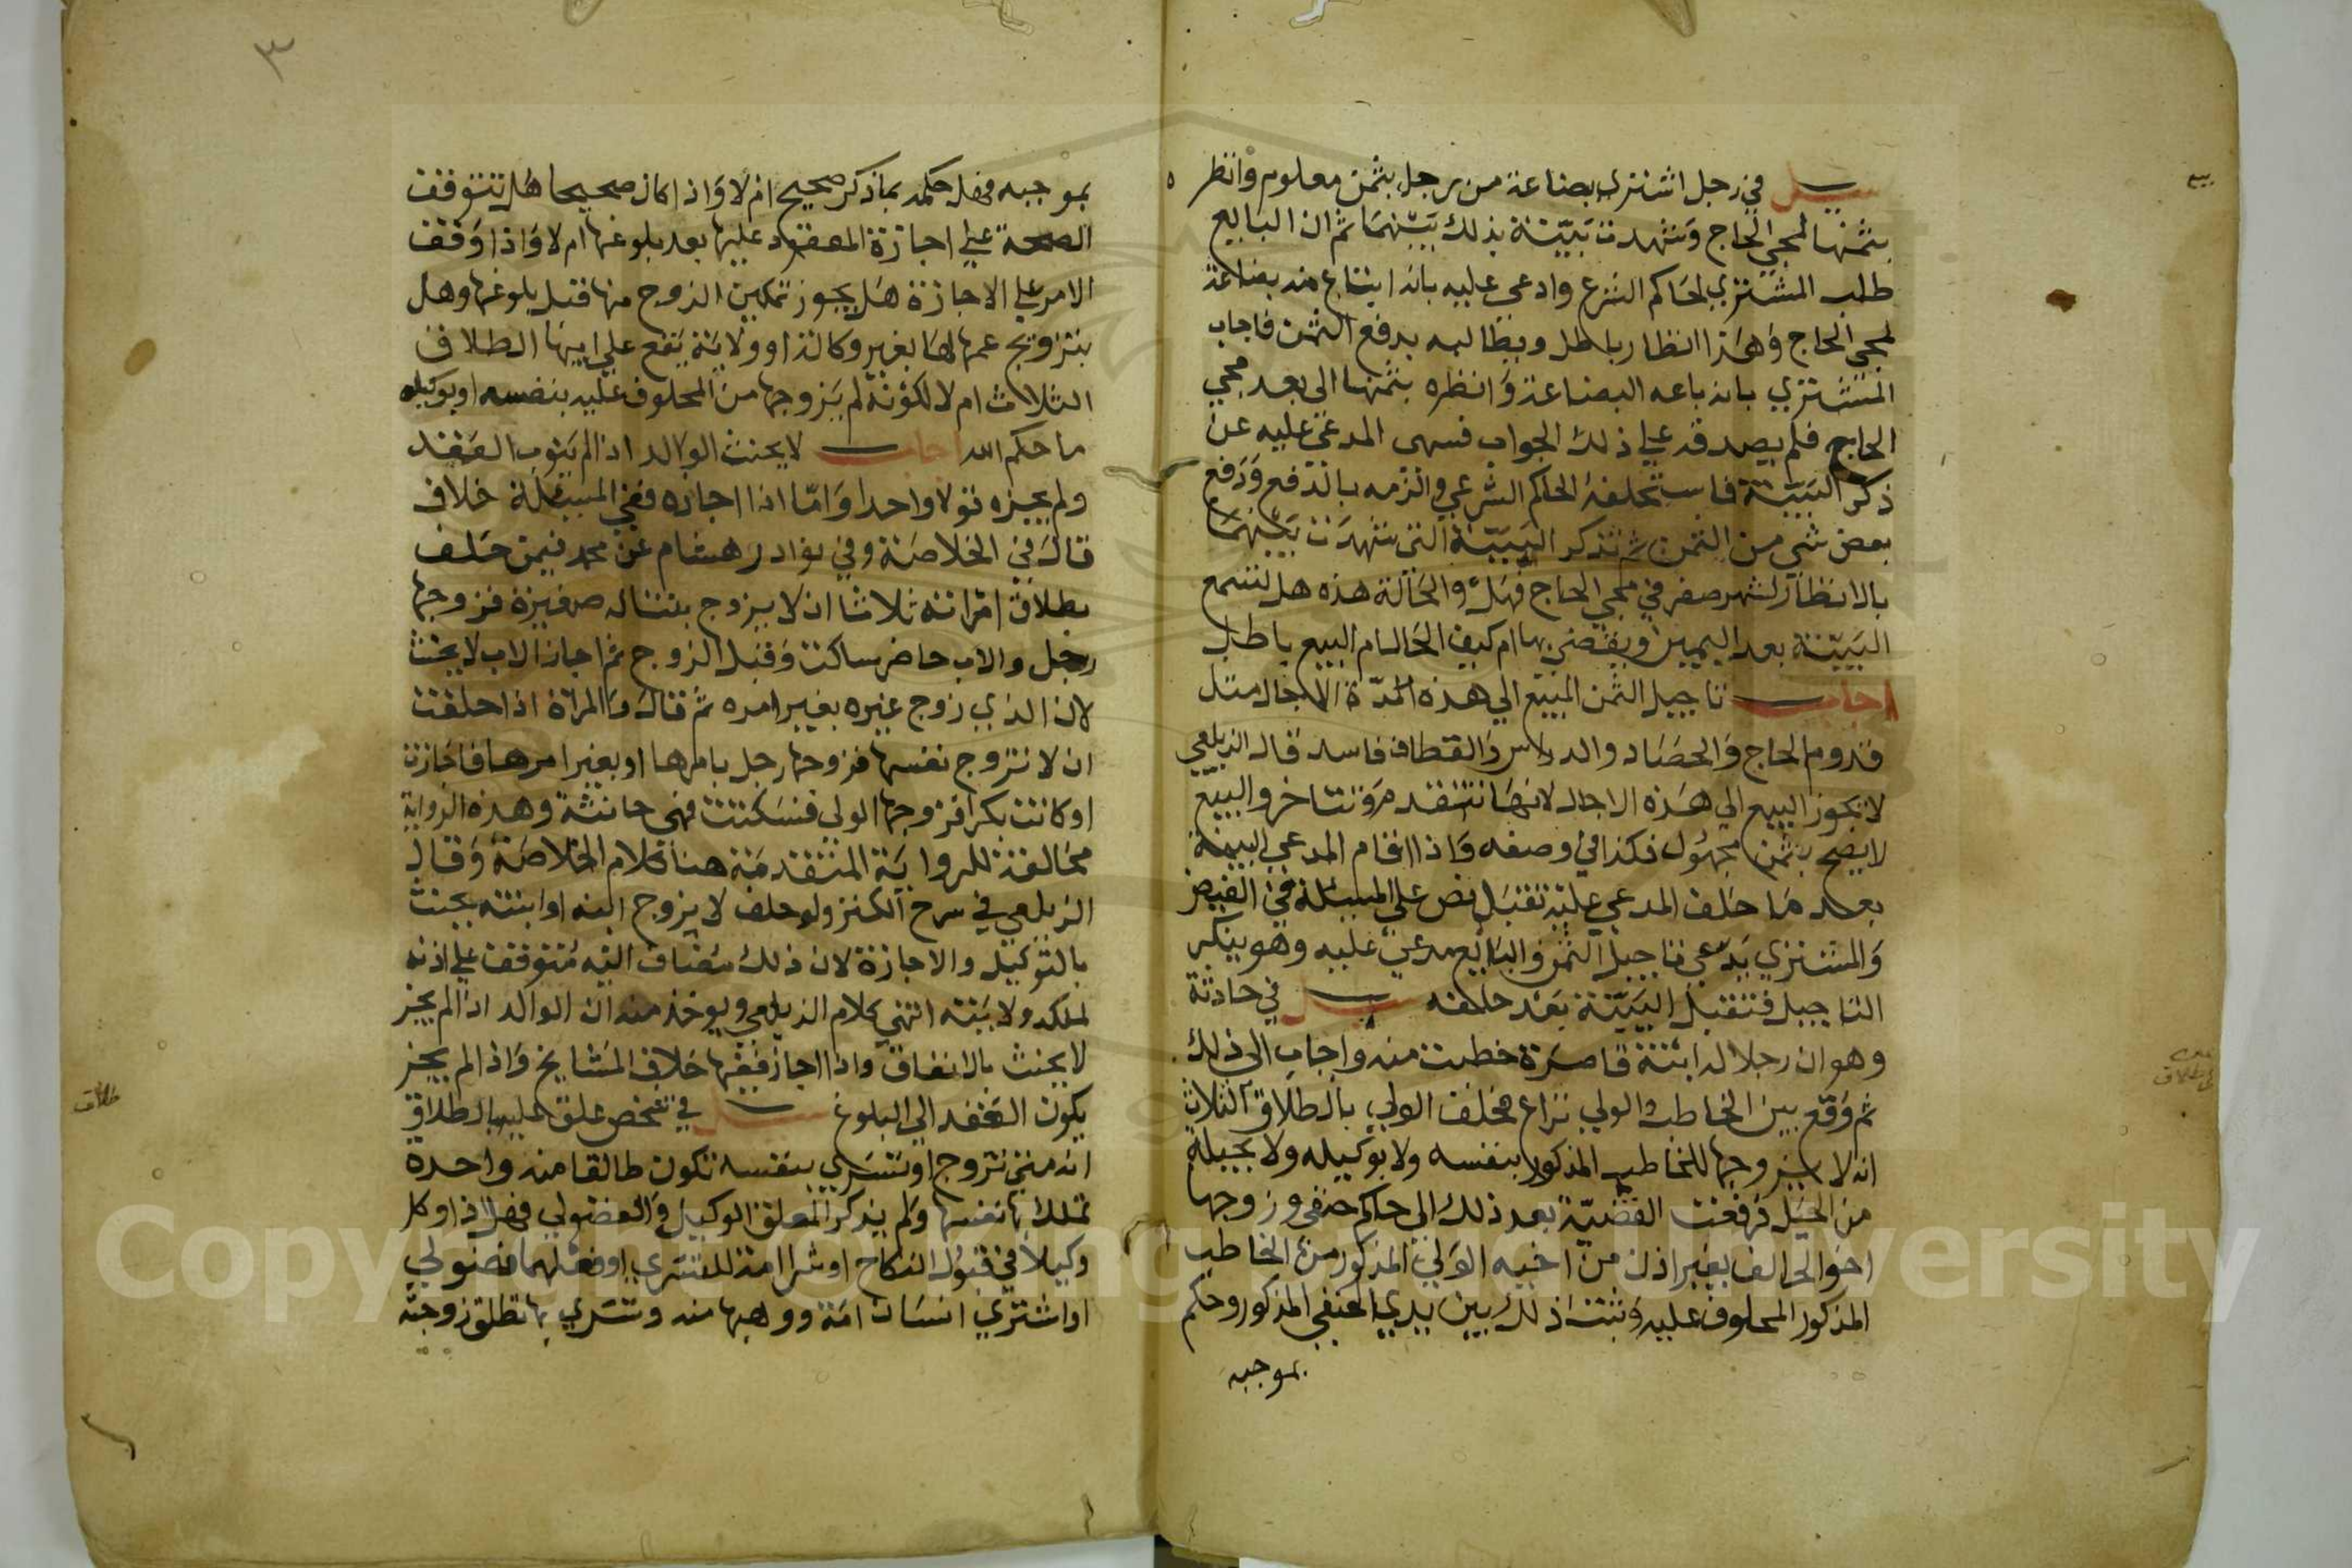 بيع
سئل في رجل اشترى بضاعة من رجل بثمن معلوم وانظره
بثمنها لمجي الحاج وشهدت بينة بذلك بينهما ثم ان البايع
طلب المشتري لحاكم الشرع وادعى عليه بانه ابتاع منه بضاعة
لمجي الحاج وهذا انظار باطل ويطالبه بدفع الثمن فاجاب
المشتري بانه باعه البضاعة وانظره بثمنها الى بعد مجي
الحاج فلم يصدقه علي ذلك الجواب فسهى المدعى عليه عن
ذكر البينة فاستحلفه الحاكم الشرعي والزمه بالدفع ودفع
بعض شي من الثمن ثم تذكر البينة التي شهدت بينهما
بالانظار لشهر صفر في مجي الحاج فهل والحالة هذه هل تسمع
البينة بعد اليمين ويقضى بها ام كيف الحال ام البيع باطل
اجاب تاجيل الثمن المبيع الي هذه المدة الاجال مثل
قدوم الحاج والحصاد والدياس والقطاف فاسد قال الزيلعي
لا يجوز البيع الي هذه الاجال لانها تتقدم وتتاخر والبيع
لا يصح بثمن مجهول فكذا في وصفه واذا اقام المدعي البينة
بعد ما حلف المدعي عليه تقبل نص علي المسئلة في الفيض
والمشتري يدعي تاجيل الثمن والبايع مدعى عليه وهو ينكر
التاجيل فتقبل البينة بعد حلفه سئل في حادثة
وهو ان رجلا له ابنة قاصرة خطبت منه واجاب الى ذلك
ثم وقع بين الخاطب والولي نزاع فحلف الولي بالطلاق الثلاث
انه لا يزوجها للخاطب المذكور بنفسه ولا بوكيله ولا بحيلة
من الحيل فرفعت القضية بعد ذلك الي حاكم حنفي وزوجها
اخو الحالف بغير اذن من اخيه الولي المذكور من الخاطب
المذكور المحلوف عليه وثبت ذلك بين يدي الحنفي المذكور وحكم
بموجبه
٣
بموجبه فهل حكمه بما ذكر صحيح ام لا واذا كان صحيحا هل تتوقف
الصحة علي اجازة المعقود عليها بعد بلوغها ام لا واذا وقف
الامر علي الاجازة هل يجوز تمكين الزوج منها قبل بلوغها وهل
بتزويج عمها لها بغير وكالة او ولاية يقع علي ابيها الطلاق
الثلاث ام لا لكونه لم يزوجها من المحلوف عليه بنفسه او بوكيله
ما حكم الله اجاب لا يحنث الوالد اذا لم يتوب العقد
ولم يجيزه قولا واحدا واما اذا اجازه ففي المسئلة خلاف
قال في الخلاصة وفي نوادر هشام عن محمد فيمن حلف
بطلاق امراته ثلاثا ان لا يزوج بنتا له صغيرة فزوجها
رجل والاب حاضر ساكت وقبل الزوج ثم اجاز الاب لا يحنث
لان الذي زوج غيره بغير امره ثم قال والمراة اذا حلفت
ان لا تزوج نفسها فزوجها رجل بامرها او بغير امرها فاجازت
او كانت بكرا فزوجها الولي فسكتت فهي حانثة وهذه الرواية
مخالفة للرواية المتقدمة هنا كلام الخلاصة وقال
الزيلعي في شرح الكنز ولو حلف لا يزوج ابنه او ابنته يحنث
بالتوكيل والاجازة لان ذلك مضاف اليه متوقف علي اذنه
لملكه ولايته انتهى كلام الزيلعي ويوخذ منه ان الوالد اذا لم يجز
لا يحنث بالاتفاق واذا اجاز ففيها خلاف المشايخ واذا لم يجز
يكون العقد الي البلوغ سئل في شخص علق عليه بالطلاق
انه متى تزوج او تسري بنفسه تكون طالقا منه واحدة
تملك بها نفسها ولم يذكر المعلق الوكيل والفضولي فهل اذا وكل
وكيلا في قبول النكاح او شرا امة للتسري او فعلهما فضولي
او اشتري انسان امة ووهبها منه وتسري بها تطلق زوجته
طلاق